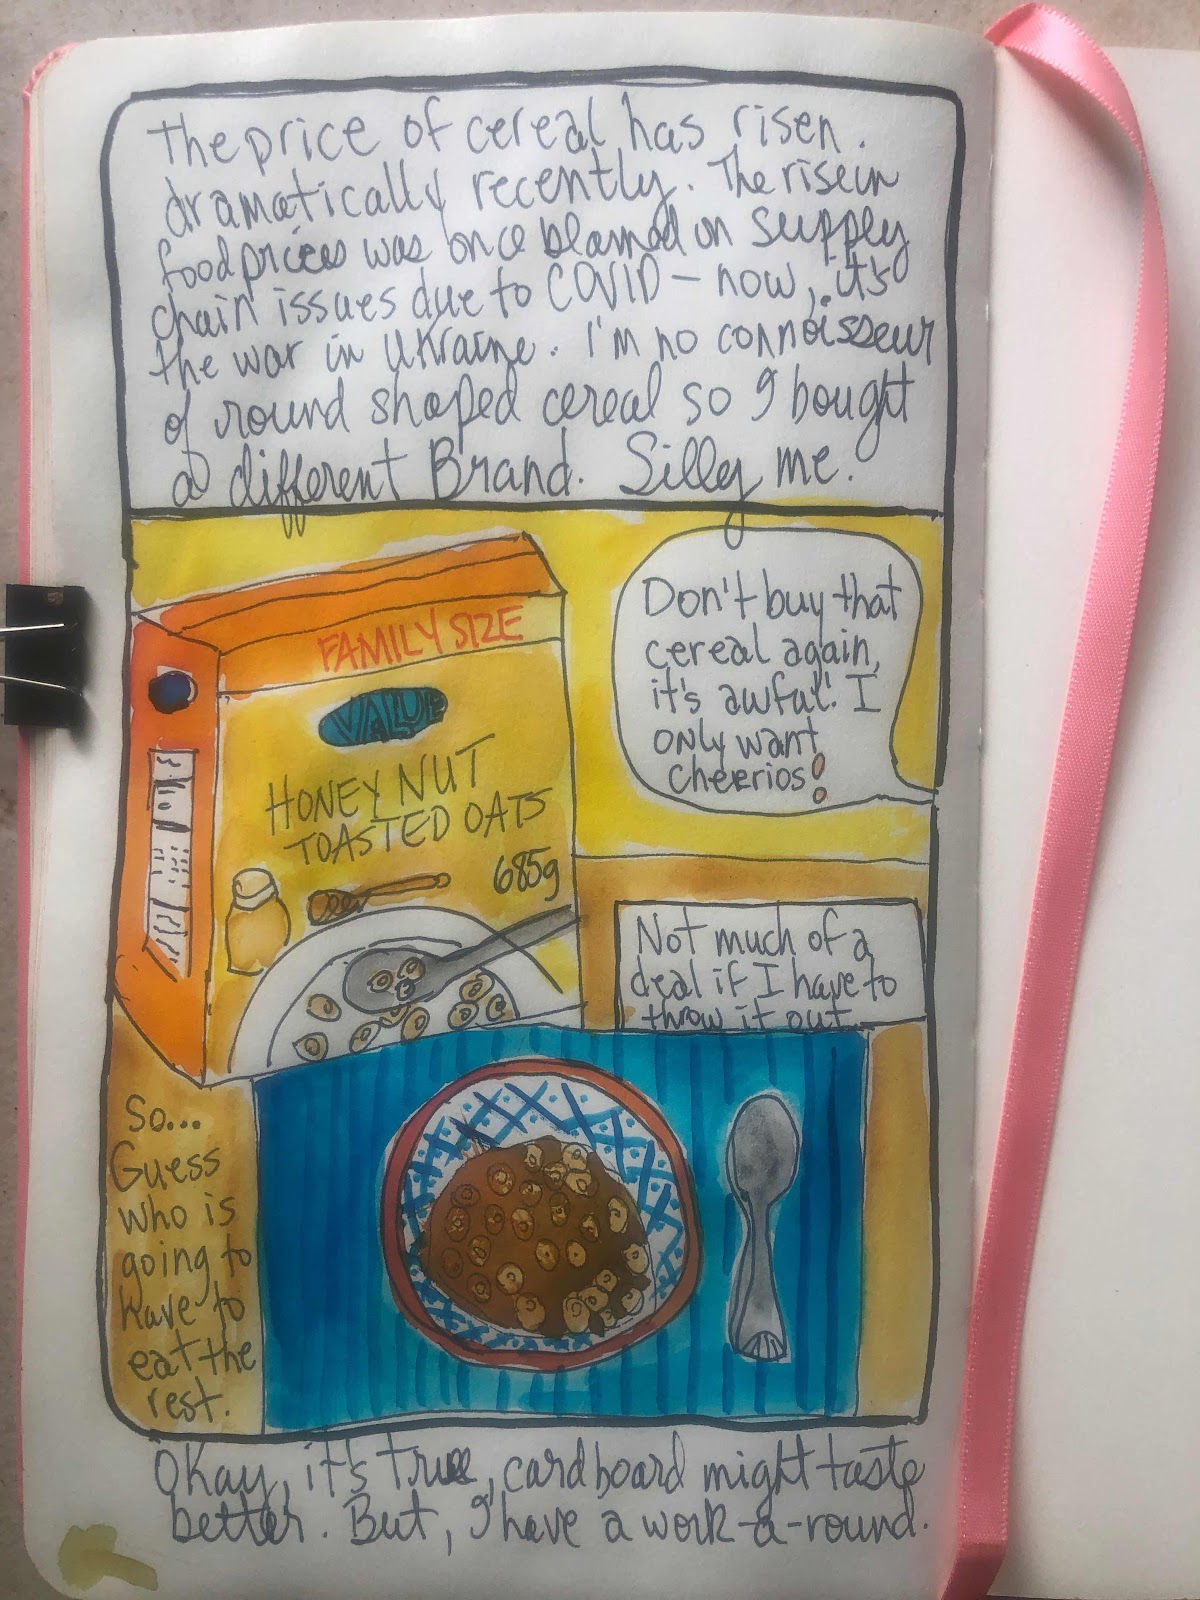 The price of cereal has risen.
dramatically recently. The rise in
food prices was once blamed on supply
chain issues due to COVID - now, it's
the war in Ukraine. I'm no connoisseur
of round shaped cereal so I bought
a different Brand. Silly me.
FAMILY SIZE
VALUE
HONEY NUT
TOASTED OATS
685g
Don't buy that
cereal again,
it's awful! I
only want
Cheerios!
Not much of a
deal if I have to
throw it out.
So...
Guess
who is
going to
have to
eat the
rest.
Okay, it's true, cardboard might taste
better. But, I have a work-a-round.